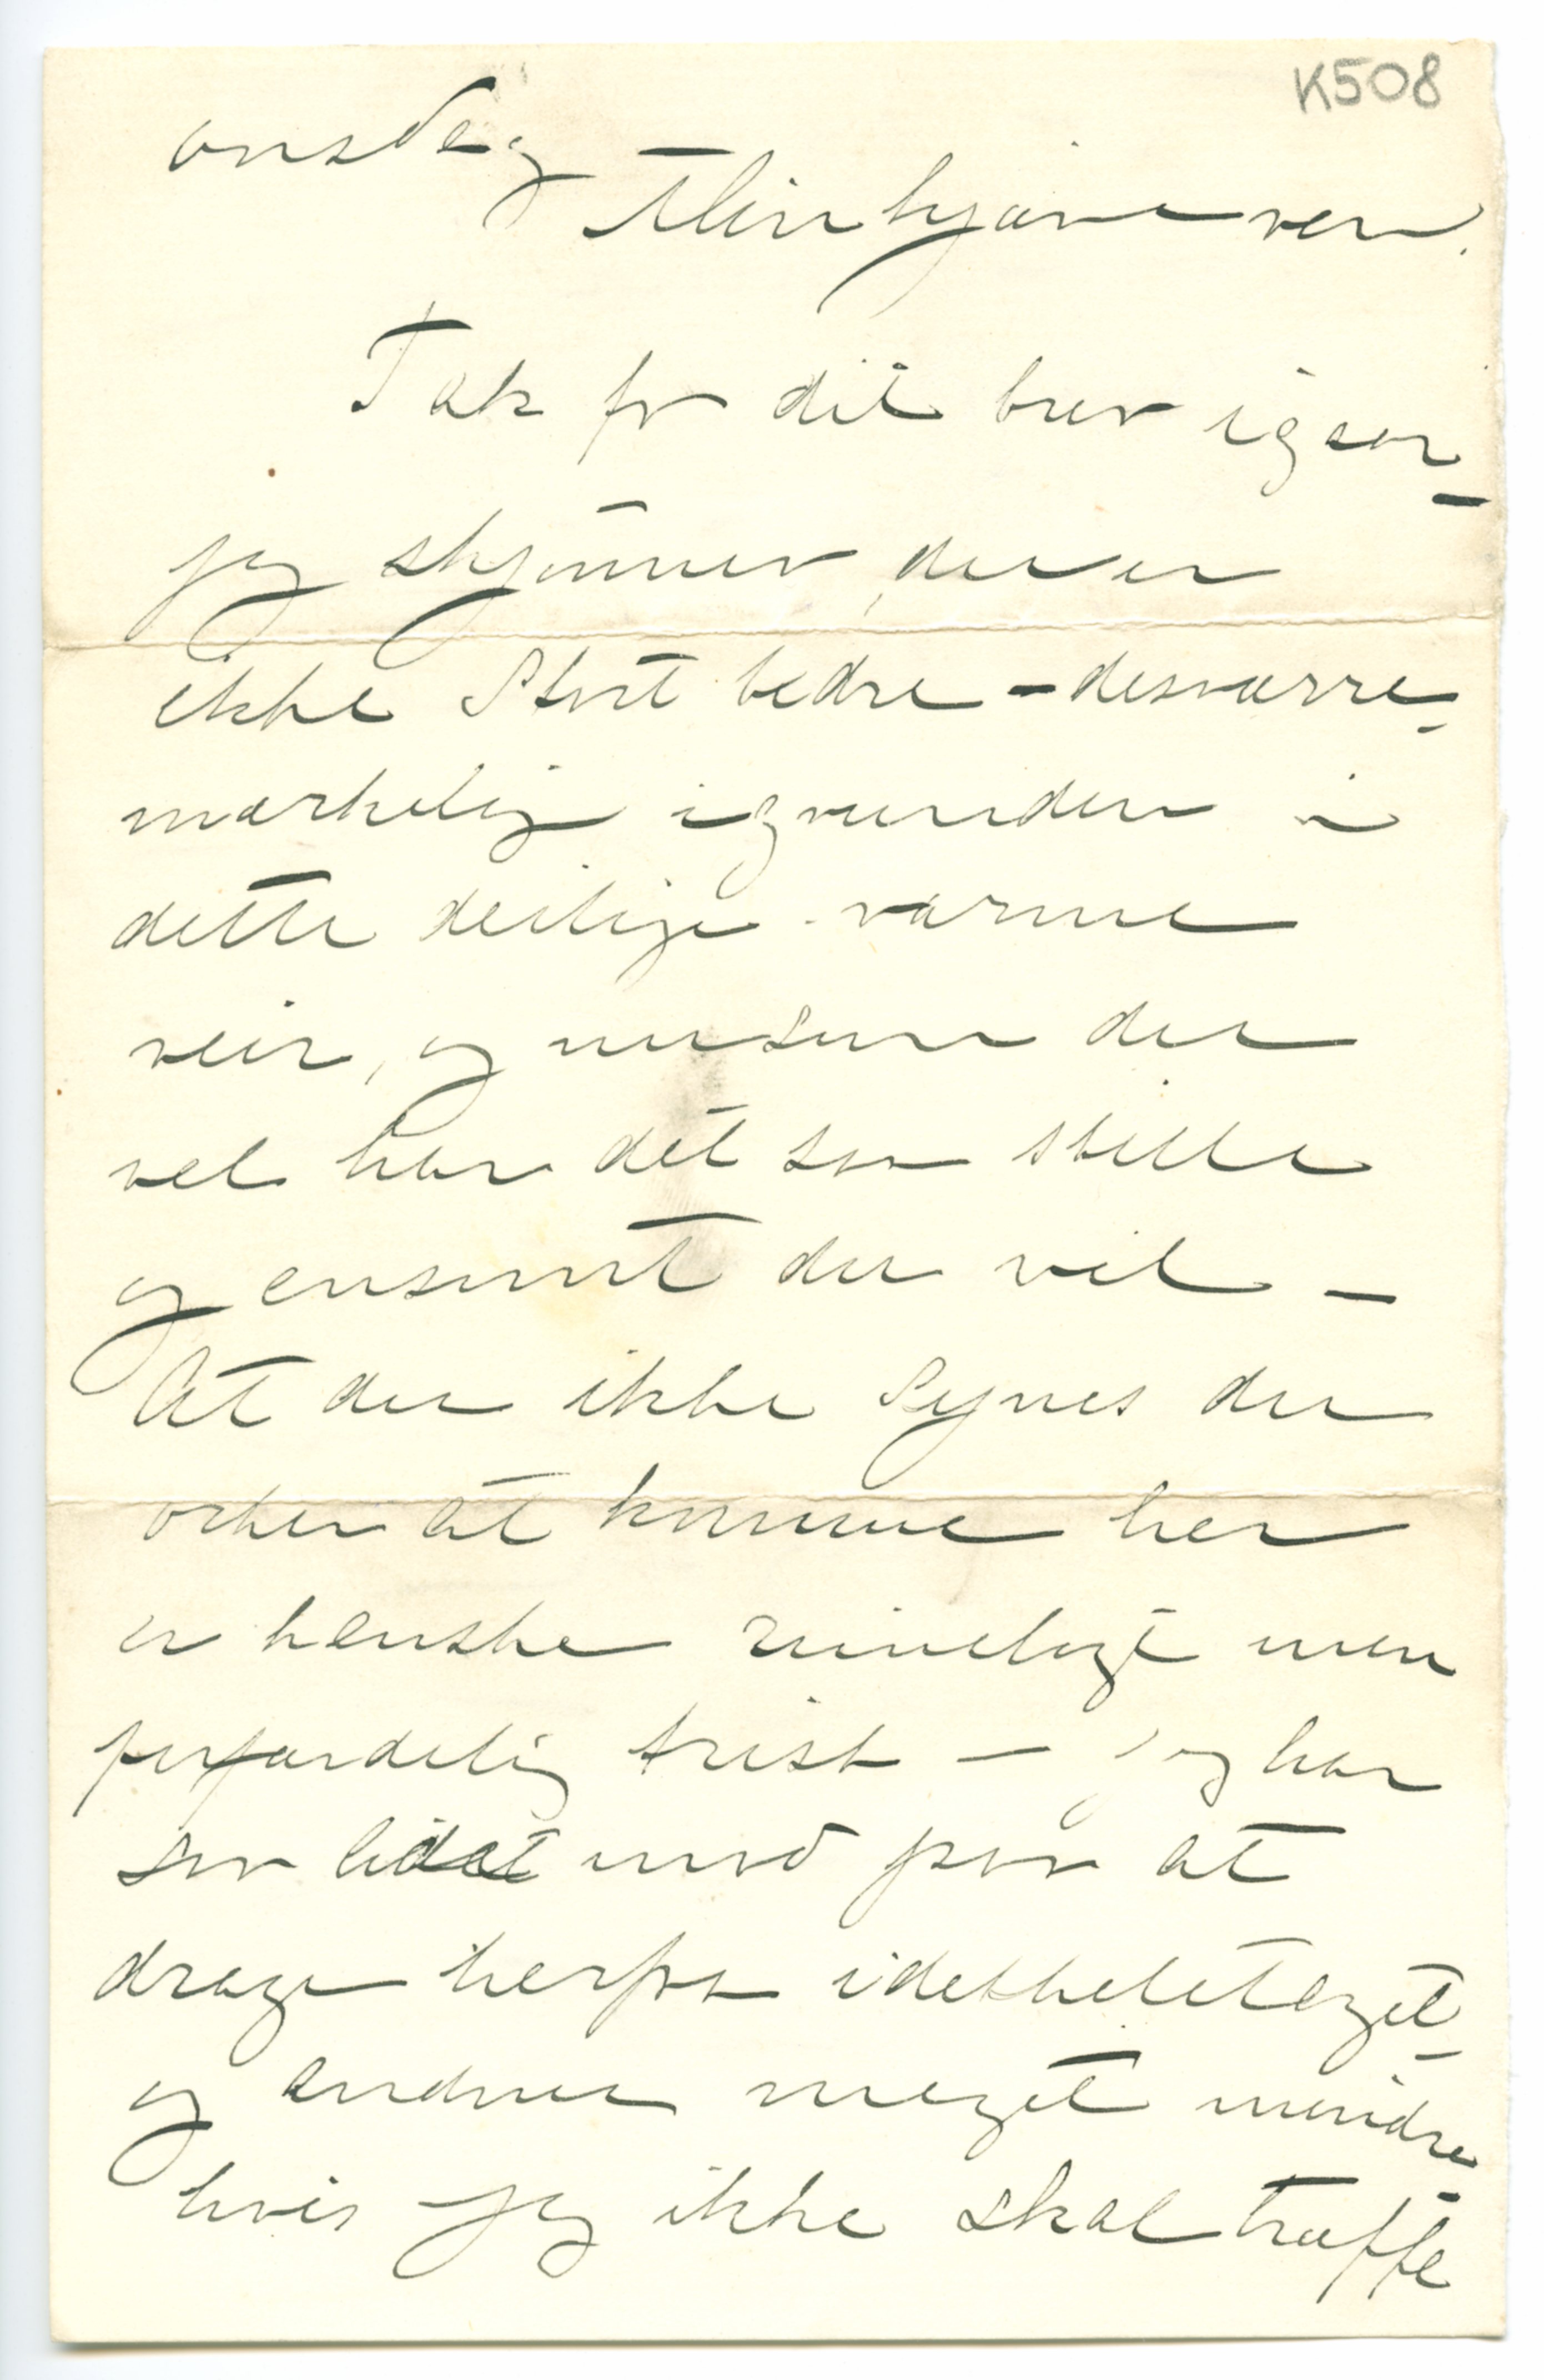 K508
onsdag
Min kjære ven.
Tak for dit brev igaar –
jeg skjønner, du er
ikke stort bedre – desværre –
mærkelig igrunden i
dette deilige varme
veir, og nu som du
vel har det saa stille
og ensomt du vil –
At du ikke synes du
orker at komme her
er kanske rimeligt men
forfærdelig trist – jeg har
saa lidet mod paa at
drage herfra idethele taget –
og endnu meget mindre
hvis jeg ikke skal træffe